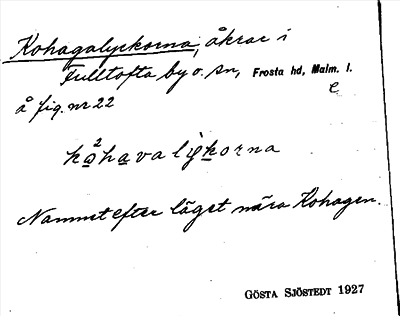 Kohagalyckorna, åkrar i
Fulltofta by o. sn, Frosta hd, Malm. l.
e
å fig. nr 22
ko²havalykorna
Namnet efter läget nära Kohagen.
GÖSTA SJÖSTEDT 1927